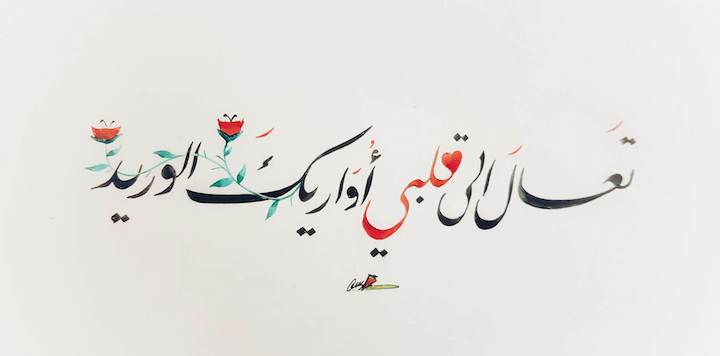 تعَالَ الى قلبي أُوَاريكَ الوريد